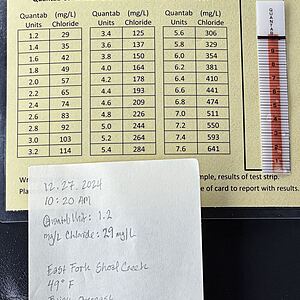 Quantab (mg/L) Quantab (mg/L) Quantab (mg/L)
Units Chloride Units Chloride Units Chloride
1.2 29 3.4 125 5.6 306
1.4 35 3.6 137 5.8 329
1.6 42 3.8 150 6.0 354
1.8 49 4.0 164 6.2 381
2.0 57 4.2 178 6.4 410
2.2 65 4.4 193 6.6 441
2.4 74 4.6 209 6.8 474
2.6 83 4.8 226 7.0 511
2.8 92 5.0 244 7.2 550
3.0 103 5.2 264 7.4 593
3.2 114 5.4 284 7.6 641
QUANTAB
sample, results of test strip.
of card to report with results.
12.27.2024
10:20 AM
Quantab Unit: 1.2
mg/L Chloride: 29 mg/L
East Fork Shoal Creek
49° F